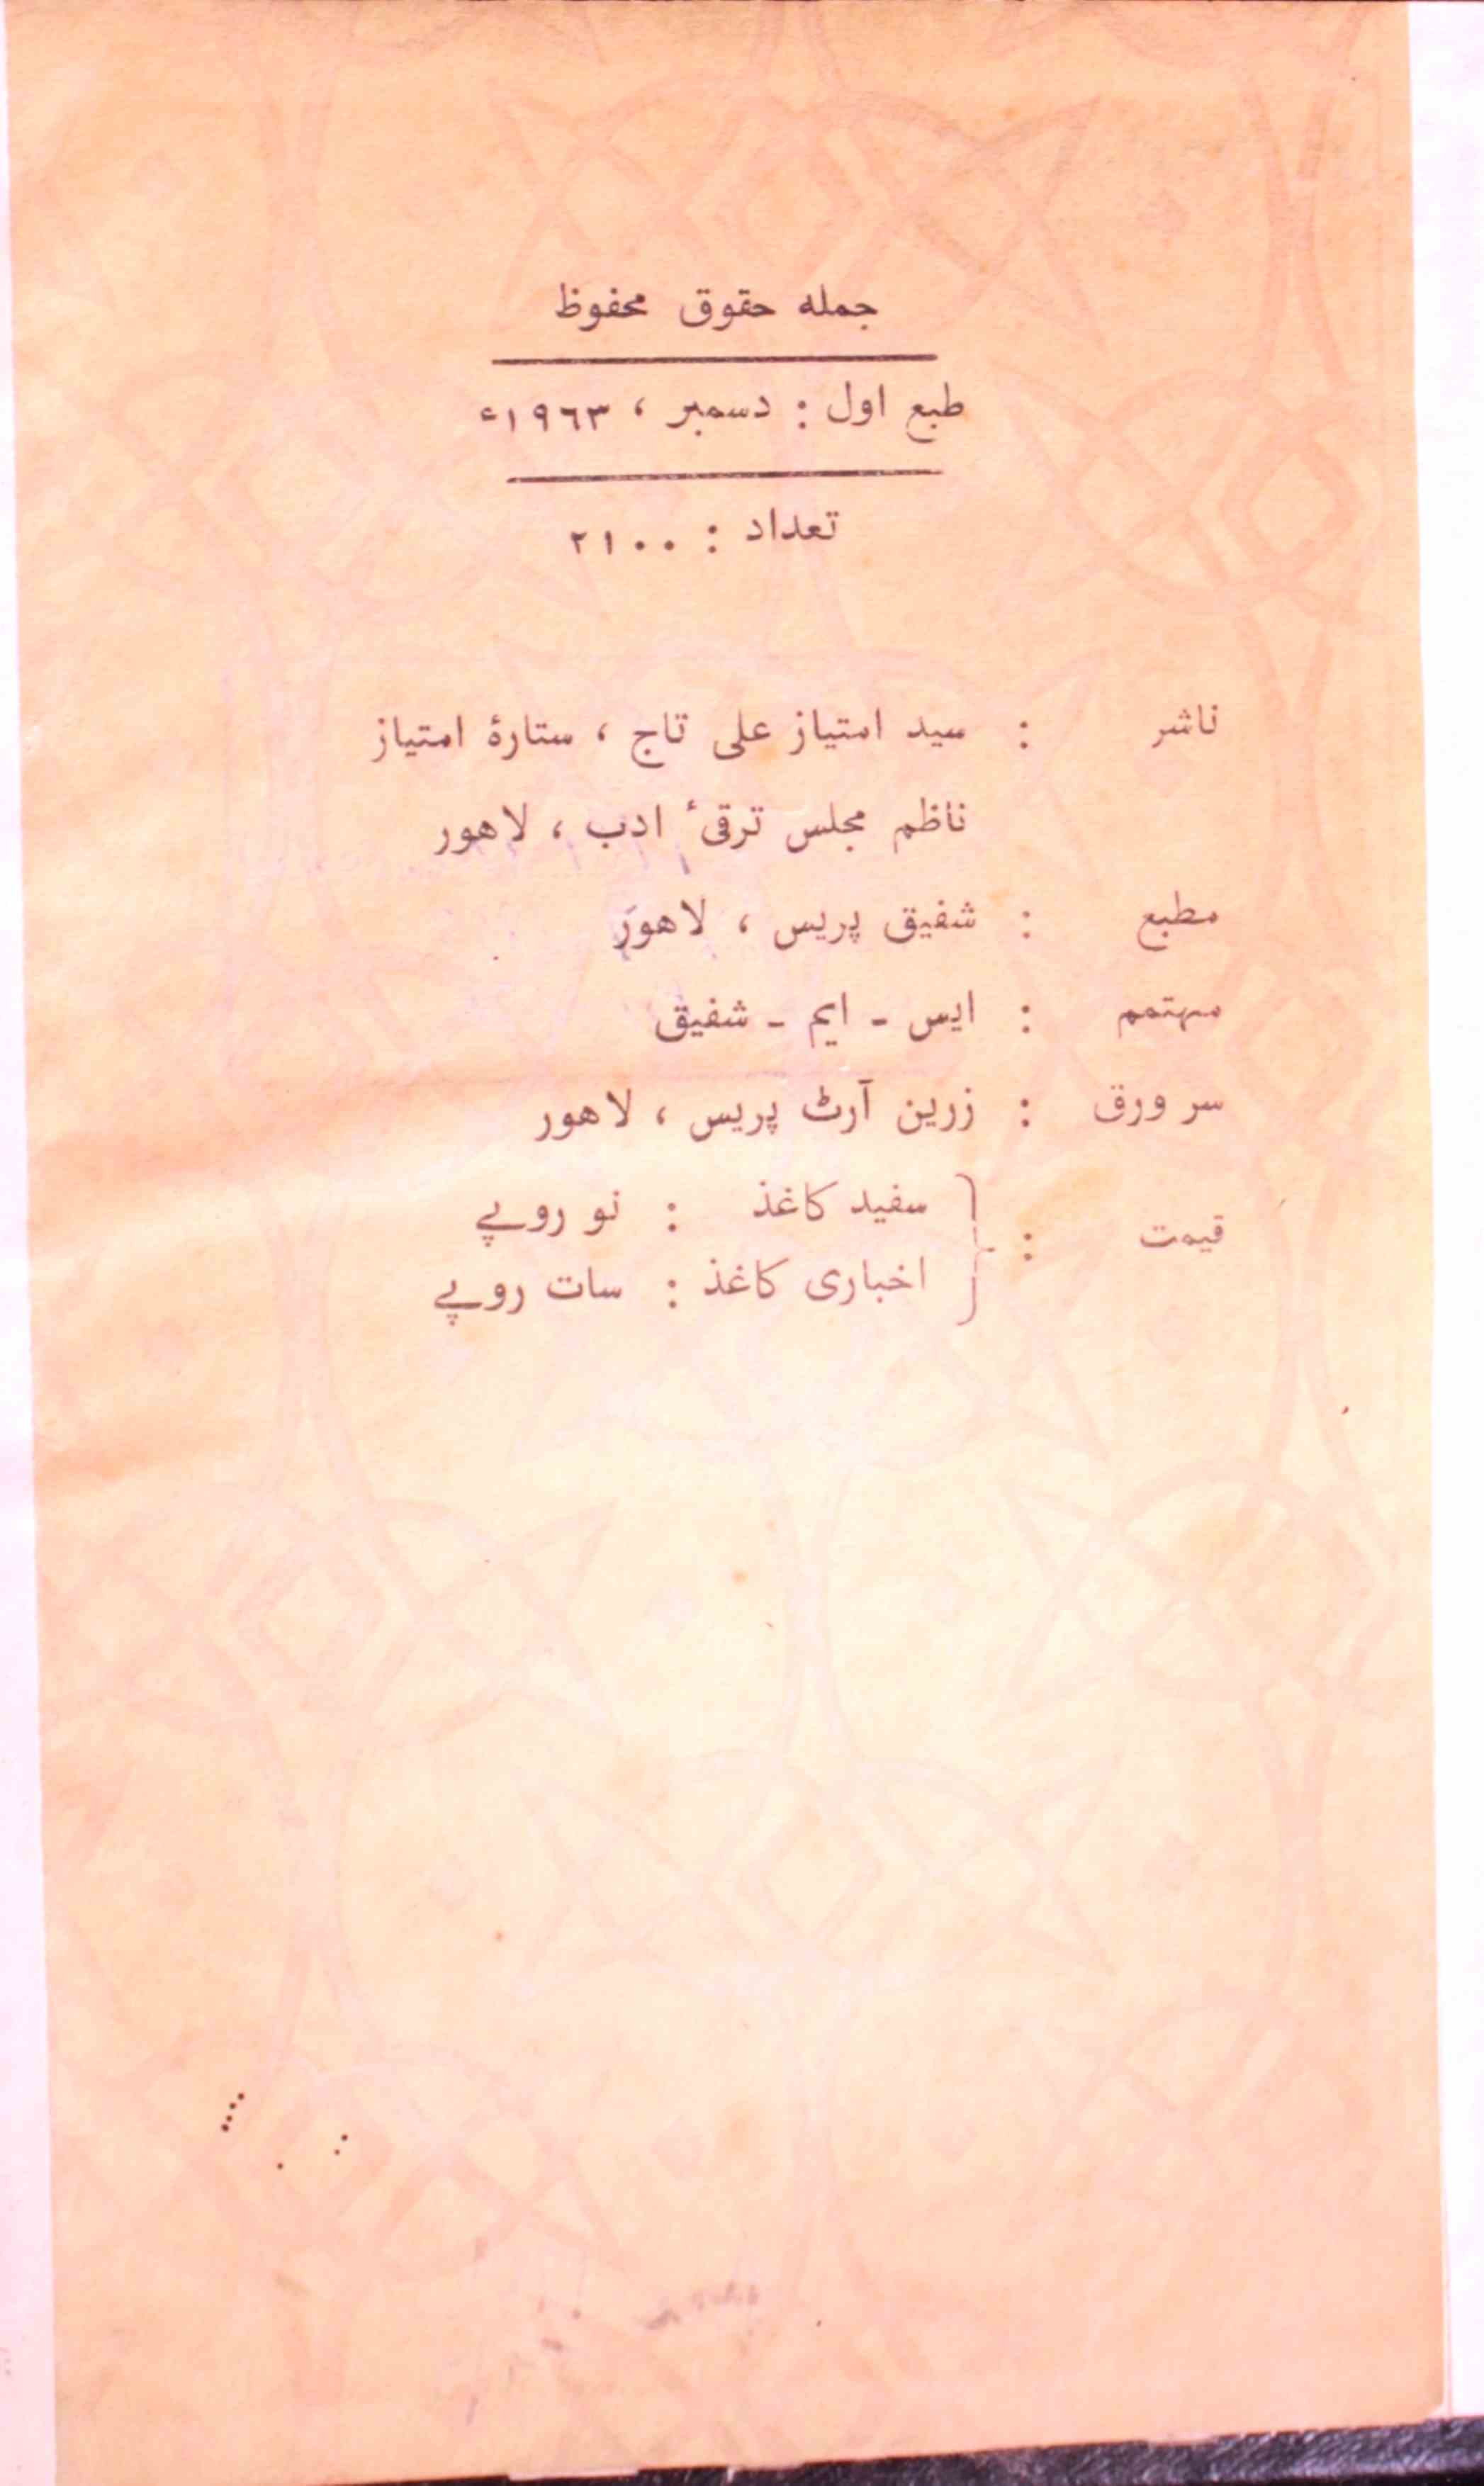 جملہ حقوق محفوظ
طبع اول : دسمبر ، ۱۹۶۳ء
تعداد : ۲۱۰۰
ناشر : سید امتیاز علی تاج ، ستارۂ امتیاز
ناظم مجلس ترقیٔ ادب ، لاھور
مطبع : شفیق پریس ، لاھور
مہتمم : ایس ۔ ایم ۔ شفیق
سر ورق : زرین آرٹ پریس ، لاھور
قیمت : { سفید کاغذ : نو روپے
اخباری کاغذ : سات روپے